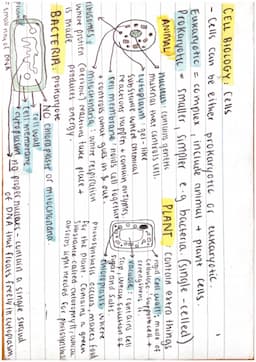 CELL BIOLOGY: Cells
- Cells can be either prokaryotic or eukaryotic.
Eukaryotic = complex include animal + plant cells.
Prokaryotic = smaller, simpler e.g bacteria (single-celled)
ANIMAL
nucleus: contains genetic
material that controls cell
cytoplasm: gel-like
substance where chemical
reactions happen + contain enzymes
cell membrane: holds cell together
+ controls what goes in & out.
mitochondria: where respiration
takes place +
produces energy
ribosomes:
where protein
is made
PLANT
contain extra things
rigid cell wall: made of
cellulose. supports cell +
strengthens it
vacuole: contains cell
sap,
sugar and salts
chloroplasts: where
photosynthesis occurs, makes food
for the plant. Contains a green
substance called chlorophyll, which
absorbs light needed for photosynthesis
BACTERIA: prokaryote
NO chloroplast or mitochondria
cell wall
cell membrane
cytoplasm
NO nucleus - contain a single strand
of DNA that floats freely in cytoplasm